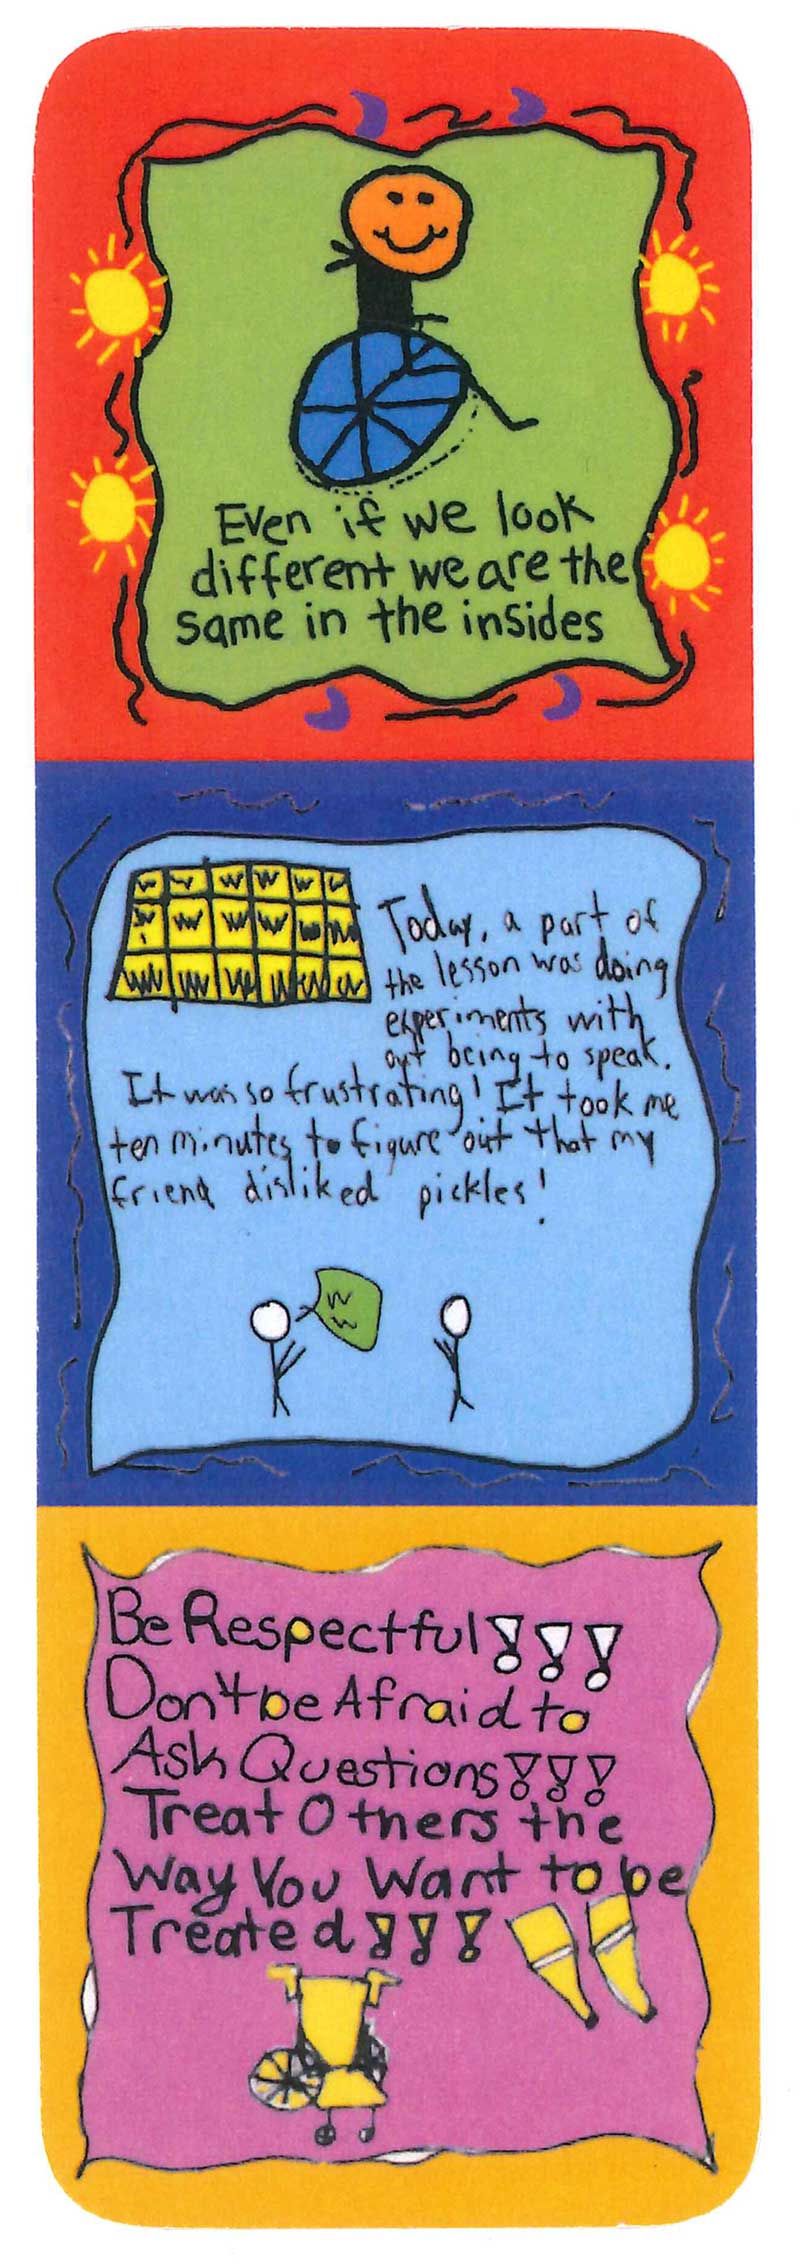 Even if we look
different we are the
same in the insides
Today, a part of
the lesson was doing
experiments with
out being to speak.
It was so frustrating! It took me
ten minutes to figure out that my
friend disliked pickles!
Be Respectful!!!
Don't be Afraid to
Ask Questions!!!
Treat Others the
Way You Want to be
Treated!!!